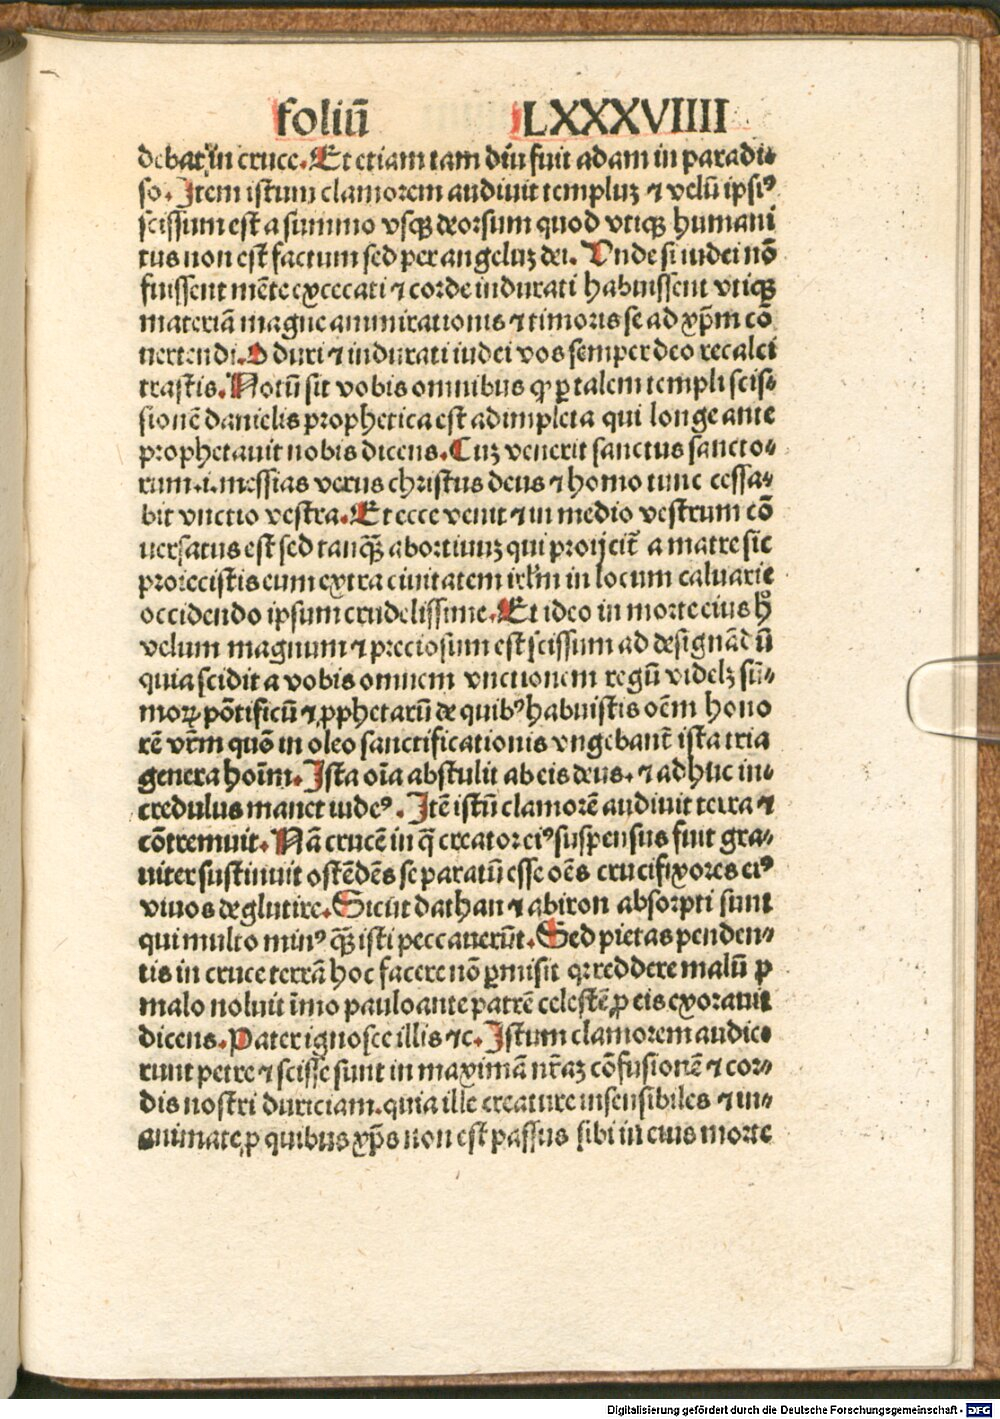 foliū LXXXVIIII
debat in cruce. Et etiam tam diu fuit adam in paradi⸗
so. Item istum clamorem audiuit templuʒ ⁊ velū ipsiꝰ
scissum est a summo vsqꝫ deorsum quod vtiqꝫ humani
tus non est factum sed per angeluʒ dei. Unde si iudei nō
fuissent mēte excecati ⁊ corde indurati habuissent vtiqꝫ
materiā magne ammirationis ⁊ timoris se ad xp̄m cō
nertendi. O duri ⁊ indurati iudei vos semper deo recalci
trastis. Notū sit vobis omnibus ꝙ ꝑ talem templi scis⸗
sionē danielis prophetica est adimpleta qui longe ante
prophetauit nobis dicens. Cuʒ venerit sanctus sancto⸗
rum .i. messias verus christus deus ⁊ homo tunc cessa⸗
bit vnctio vestra. Et ecce venit ⁊ in medio vestrum cō
uersatus est sed tanqꝫ̄ abortiuuʒ qui proijcit̄ a matre sic
proiecistis eum extra ciuitatem irl̄m in locum caluarie
occidendo ipsum crudelissime. Et ideo in morte eius hͦ
velum magnum ⁊ preciosum est scissum ad designādū
quia scidit a vobis omnem vnctionem regū videlʒ sū⸗
moꝝ pōtificū ⁊ ꝓphetarū de quibꝰ habuistis oēm hono
rē vr̄m quō in oleo sanctificationis vngebant̄ ista tria
genera hoīm. Ista oīa abstulit ab eis deus. ⁊ adhuc in⸗
credulus manet iudeꝰ. Itē istū clamorē audiuit terra ⁊
cōtremuit. Nā crucē in q̄ creator eiꝰ suspensus fuit gra⸗
uiter sustinuit ostēdēs se paratū esse oēs crucifixores eiꝰ
viuos deglutire. Sicut dathan ⁊ abiron absorpti sunt
qui multo minꝰ qꝫ̄ isti peccauerūt. Sed pietas penden⸗
tis in cruce terrā hoc facere nō ꝑmisit qꝛ reddere malū ꝓ
malo noluit īmo pauloante patrē celestē ꝓ eis exorauit
dicens. Pater ignosce illis ⁊c. Istum clamorem audie⸗
runt petre ⁊ scisse sunt in maximā nr̄aʒ cōfusionē ⁊ cor⸗
dis nostri duriciam. quia ille creature insensibiles ⁊ in⸗
animate, ꝓ quibus xp̄s non est passus sibi in eius morte
Digitalisierung gefördert durch die Deutsche Forschungsgemeinschaft - DFG